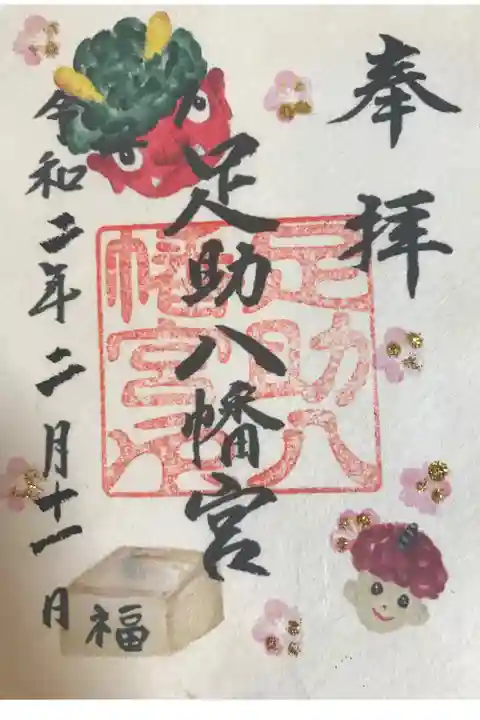 奉拝
足助八幡宮
足助八幡宮
令和二年二月十一日
福